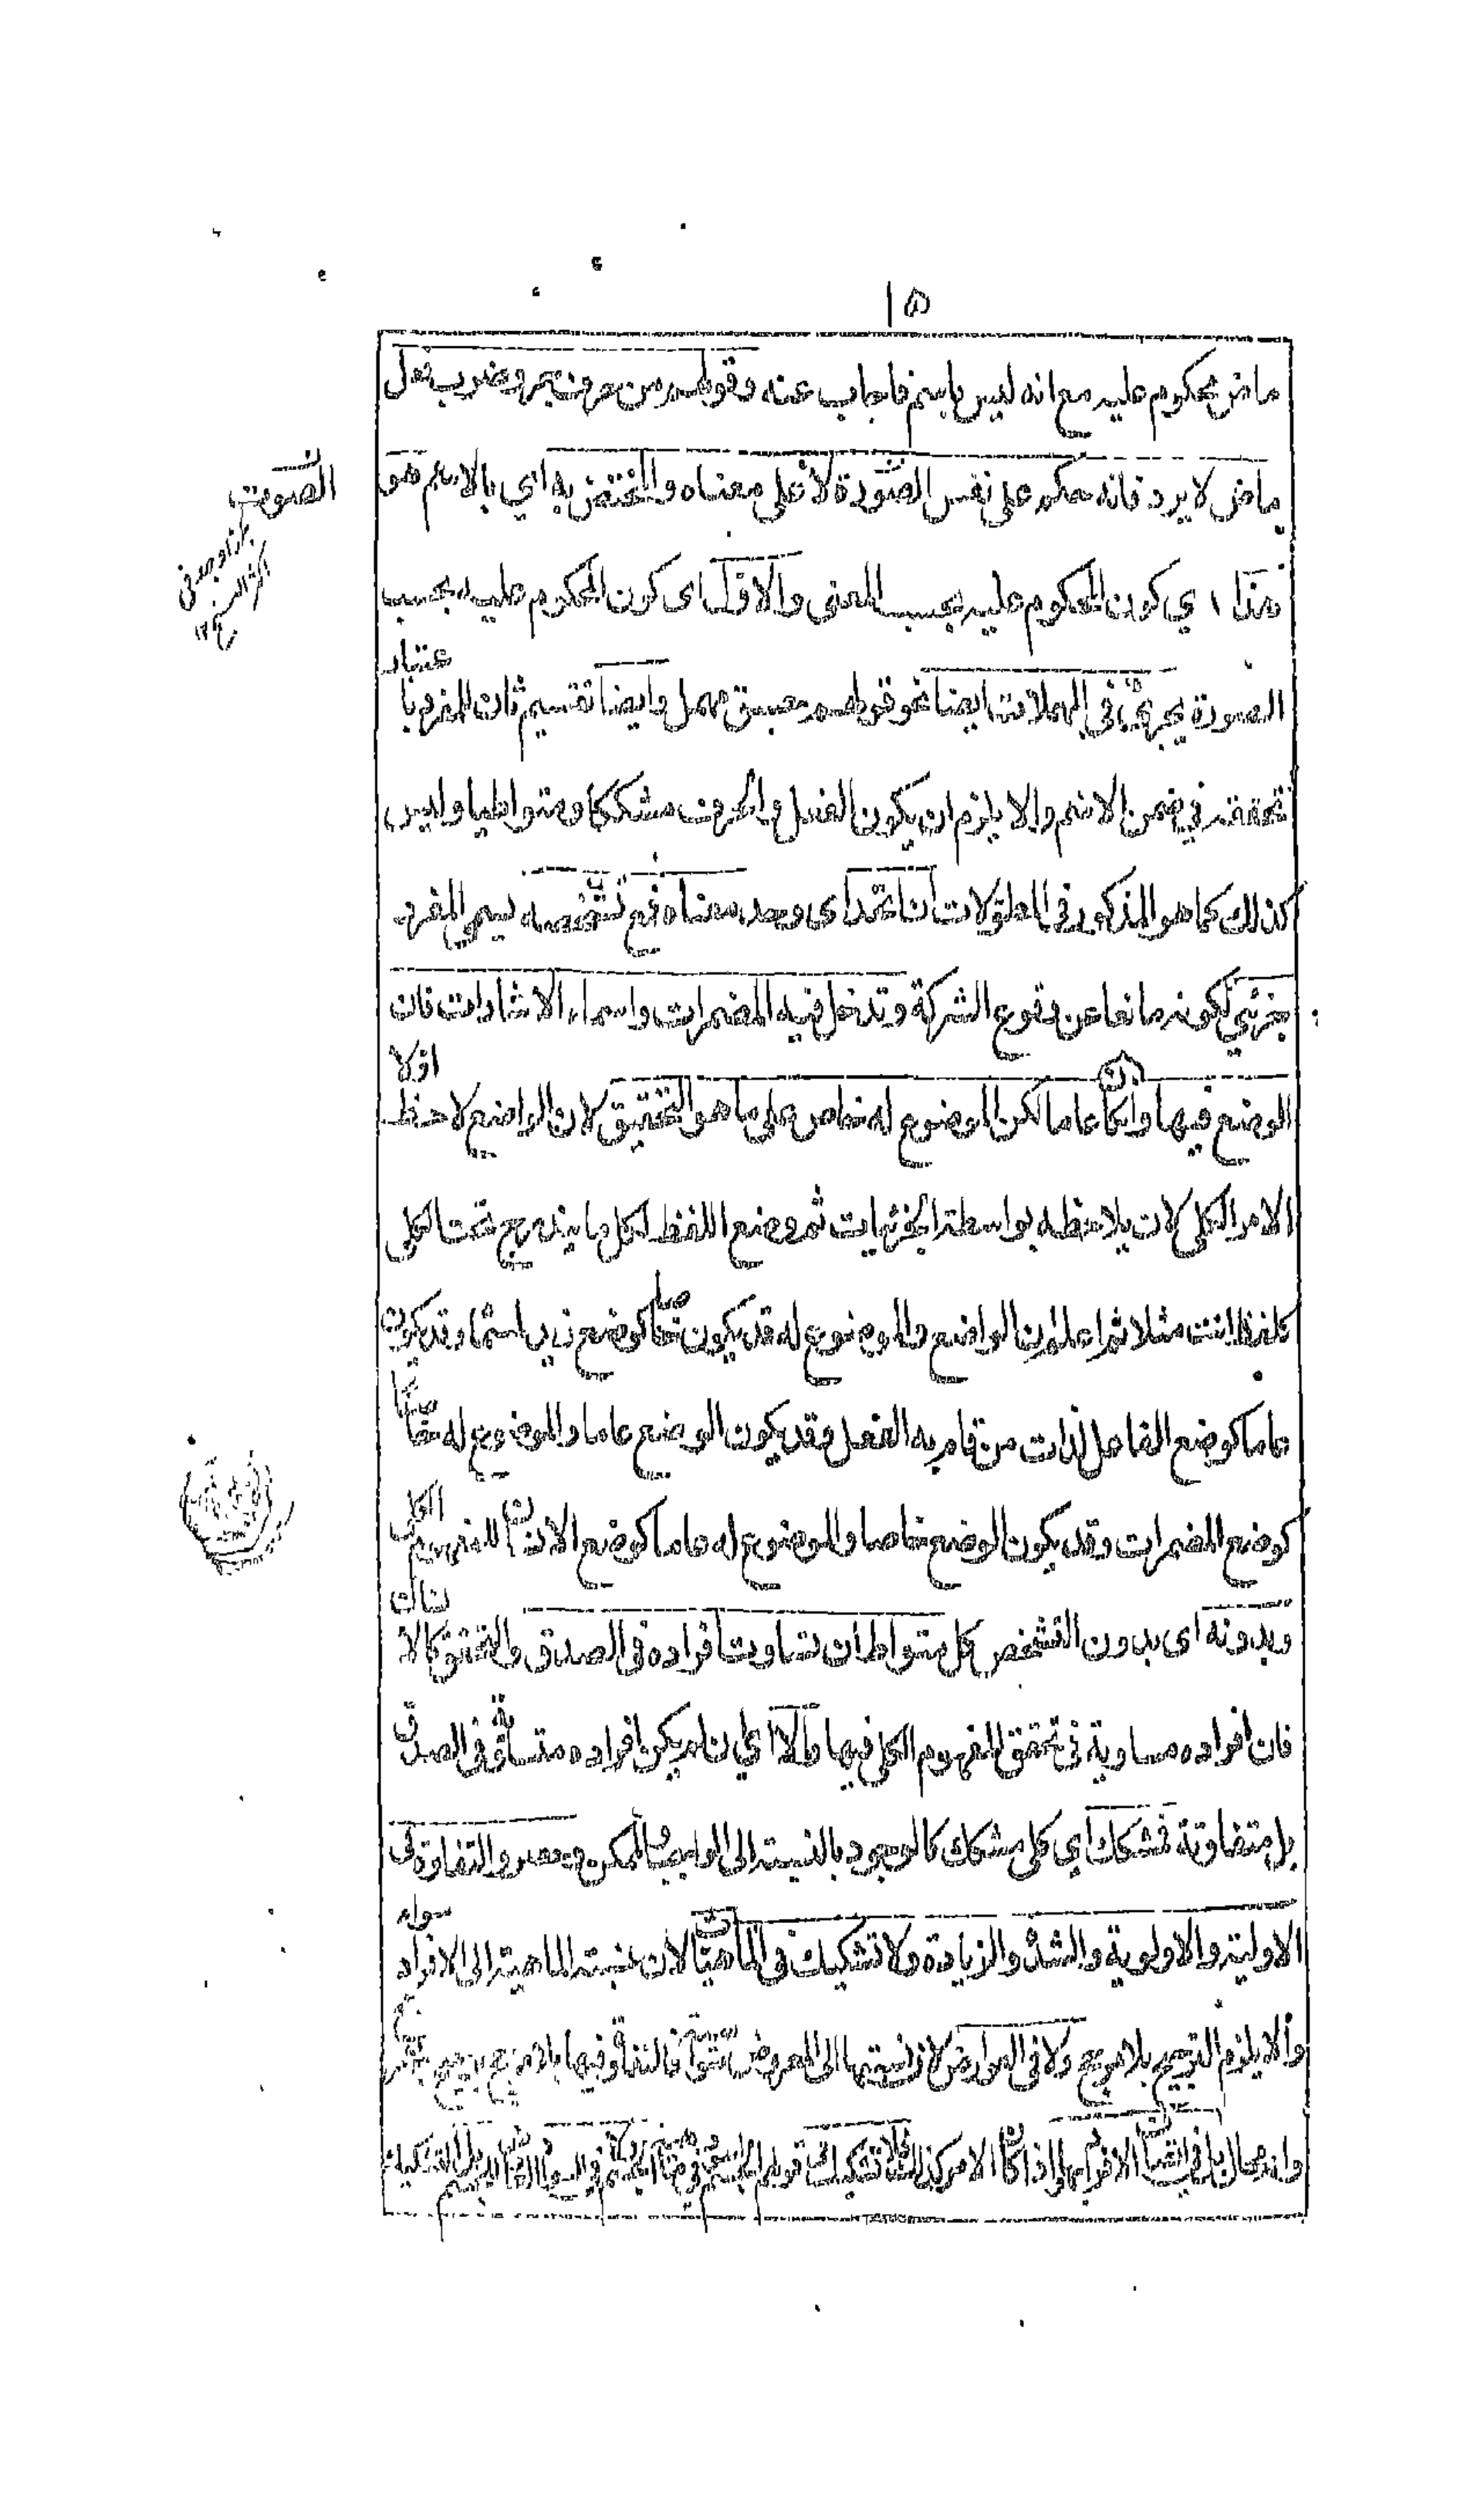 ١٥
ماض محكوم عليه مع انه ليس باسم فاجاب عنه وقولهم من حرف جر وضرب فعل
ماض لا يرد فانه حكم على نفس الصورة لا على معناه والمختص به اي بالاسم هو
هذا اي كون المحكوم عليه بحسب المعنى والاول اى كون المحكوم عليه بحسب
الصورة يجرى في المهملات ايضا نحو قولهم جسق مهمل وايضا تقسيم ثان للمفرد باعتبار
تحققه في ضمن الاسم والا يلزم ان يكون الفعل والحرف مشككا ومتواطيا وليس
كذلك كما هو المذكور في المطولات ان اتحد اى وحد معناه فمع تشخصه يسمى المفرد
بجزئي لكونه مانعا عن وقوع الشركة وتدخل فيه المضمرات واسماء الاشارات فان
الوضع فيها وان كان عاما لكن الموضوع له خاص على ما هو التحقيق لان الواضع لاحظ اولا
الامر الكلي لان يلاحظ به بواسطة الجزئيات ثم وضع اللفظ لكل ما يندرج تحت الكلي
كلفظ انت مثلا ثم اعلم ان الواضع والموضوع له قد يكون خاصا كوضع زيد اسما وقد يكون
عاما كوضع الفاعل لذات من قام به الفعل وقد يكون الوضع عاما والموضوع له خاصا
كوضع المضمرات وقد يكون الوضع خاصا والموضوع له عاما كوضع الانسان للمفهوم الكلي
وبدونه اى بدون التشخص كل متواط ان تساوت افراده في الصدق والتحقق كالانسان
فان افراده مساوية في تحقق المفهوم الكلي فيها والا اي ان لم يكن افراده متساوية في الصدق
بل متفاوتة فمشكك اي كلي مشكك كالوجود بالنسبة الى الواجب والممكن وحصروا التفاوة في
الاولية والاولوية والشدة والزيادة ولا تشكيك في الماهيات لان نسبة الماهية الى الافراد سواء
والا يلزم الترجيح بلا مرجح ولا في العوارض لان نسبتها الى المعروض
الصوت